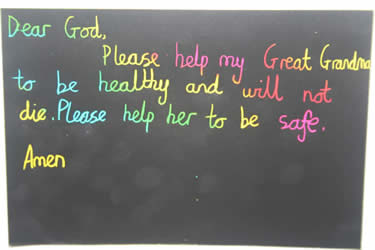 Dear God,
Please help my Great Grandma
to be healthy and will not
die. Please help her to be safe.
Amen